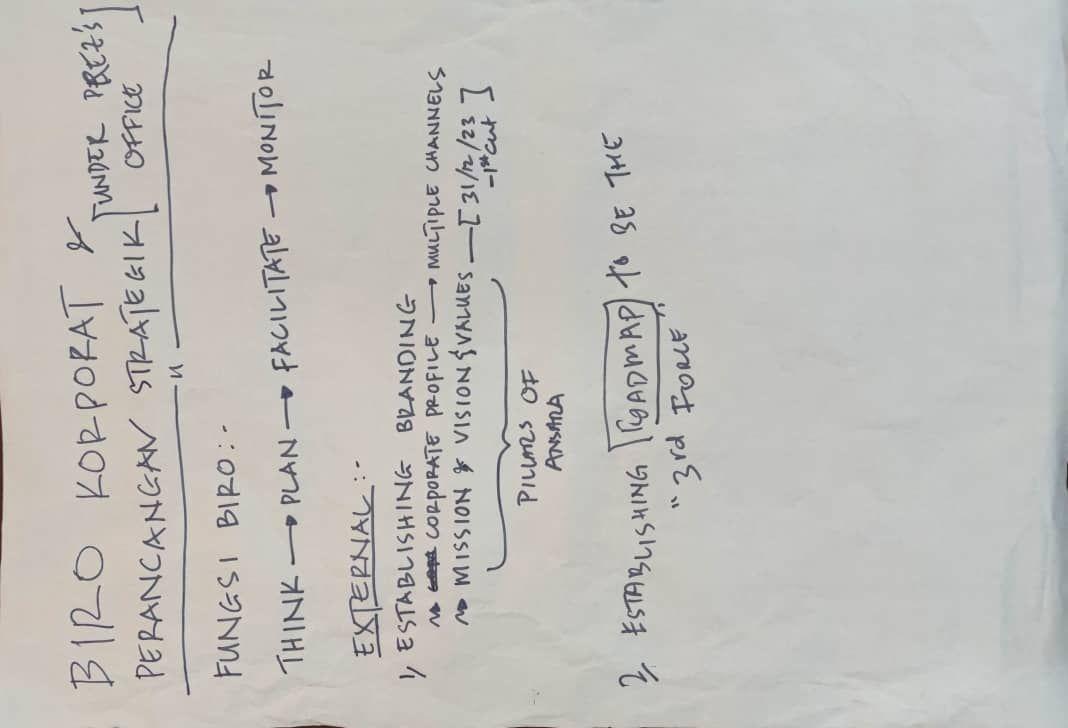 BIRO KORPORAT &
PERANCANGAN STRATEGIK [UNDER PREZ'S OFFICE]
FUNGSI BIRO:-
THINK → PLAN → FACILITATE → MONITOR
EXTERNAL:-
1) ESTABLISHING BRANDING
↝ CORPORATE PROFILE → MULTIPLE CHANNELS
↝ MISSION & VISION & VALUES — [31/12/23]
-1st cut
PILLARS OF
ANSARA
2) ESTABLISHING ROADMAP TO BE THE
"3rd FORCE"